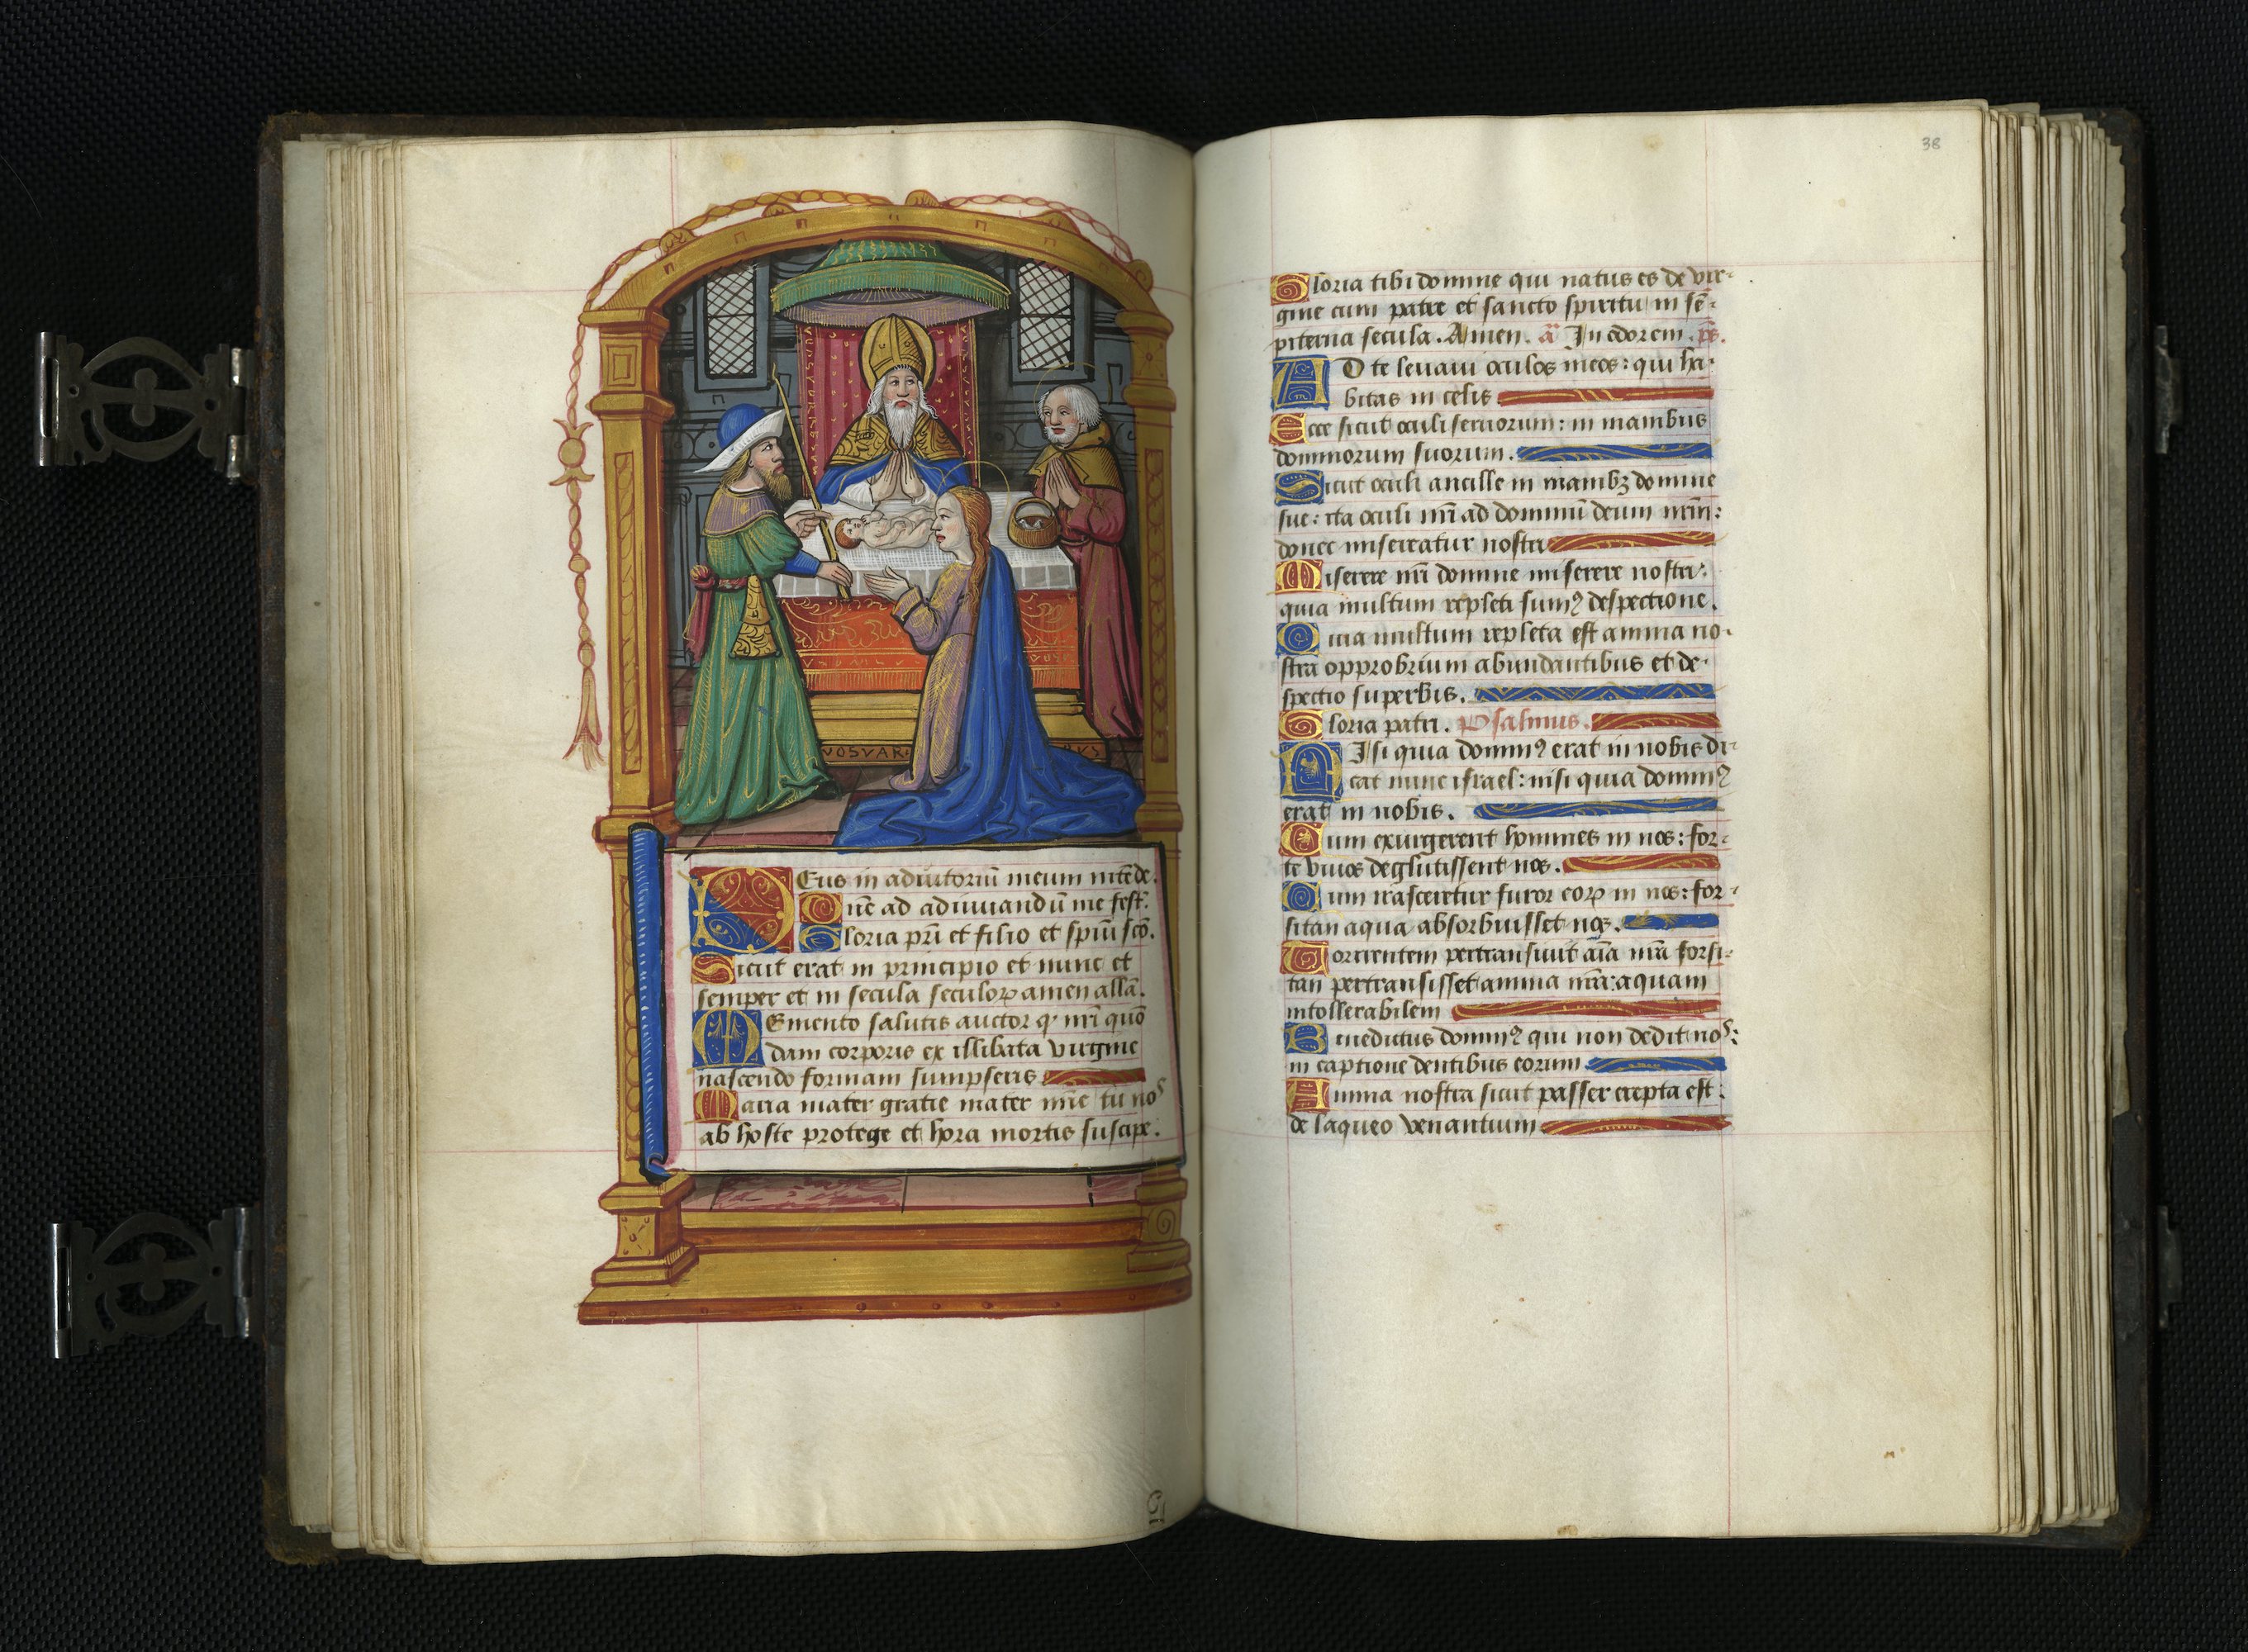 VOSVAR
BVS
Deus in adiutoriū meum intēde.
Dne ad adiuuandū me fest:
Gloria pr̄i et filio et spiu̅i scō.
Sicut erat in principio et nunc et
semper et in secula seculoꝝ amen allā.
Memento salutis auctor qͥ nr̄i quō
dam corporis ex illibata virgine
nascendo formam sumpseris
Maria mater gratie mater mīe tu noˢ
ab hoste protege et hora mortis suscipe.
38
Gloria tibi domine qui natus es de vir-
gine cum patre et sancto spiritu in sē-
piterna secula. Amen. ā Jn odorem. ps.
AD te leuaui oculos meos: qui ha-
bitas in celis
Ecce sicut oculi seruorum: in manibus
dominorum suorum.
Sicut oculi ancille in manibꝫ domine
sue: ita oculi nr̄i ad dominū deum nr̄m:
donec misereatur nostri
Miserere nr̄i domine miserere nostri:
quia multum repleti sumꝰ despectione.
Quia multum repleta est anima no-
stra opprobrium abundantibus et de-
spectio superbis.
Gloria patri. Psalmus.
NJsi quia dominꝰ erat in nobis di-
cat nunc israel: nisi quia dominꝰ
erat in nobis.
Cum exurgerent homines in nos: for-
te viuos deglutissent nos.
Cum irasceretur furor eoꝝ in nos: for-
sitan aqua absorbuisset nos.
Torrentem pertransiuit aīa nr̄a forsi-
tan pertransisset anima nr̄a: aquam
intollerabilem
Benedictus dominꝰ qui non dedit noˢ:
in captione dentibus eorum
Anima nostra sicut passer erepta est:
de laqueo venantium